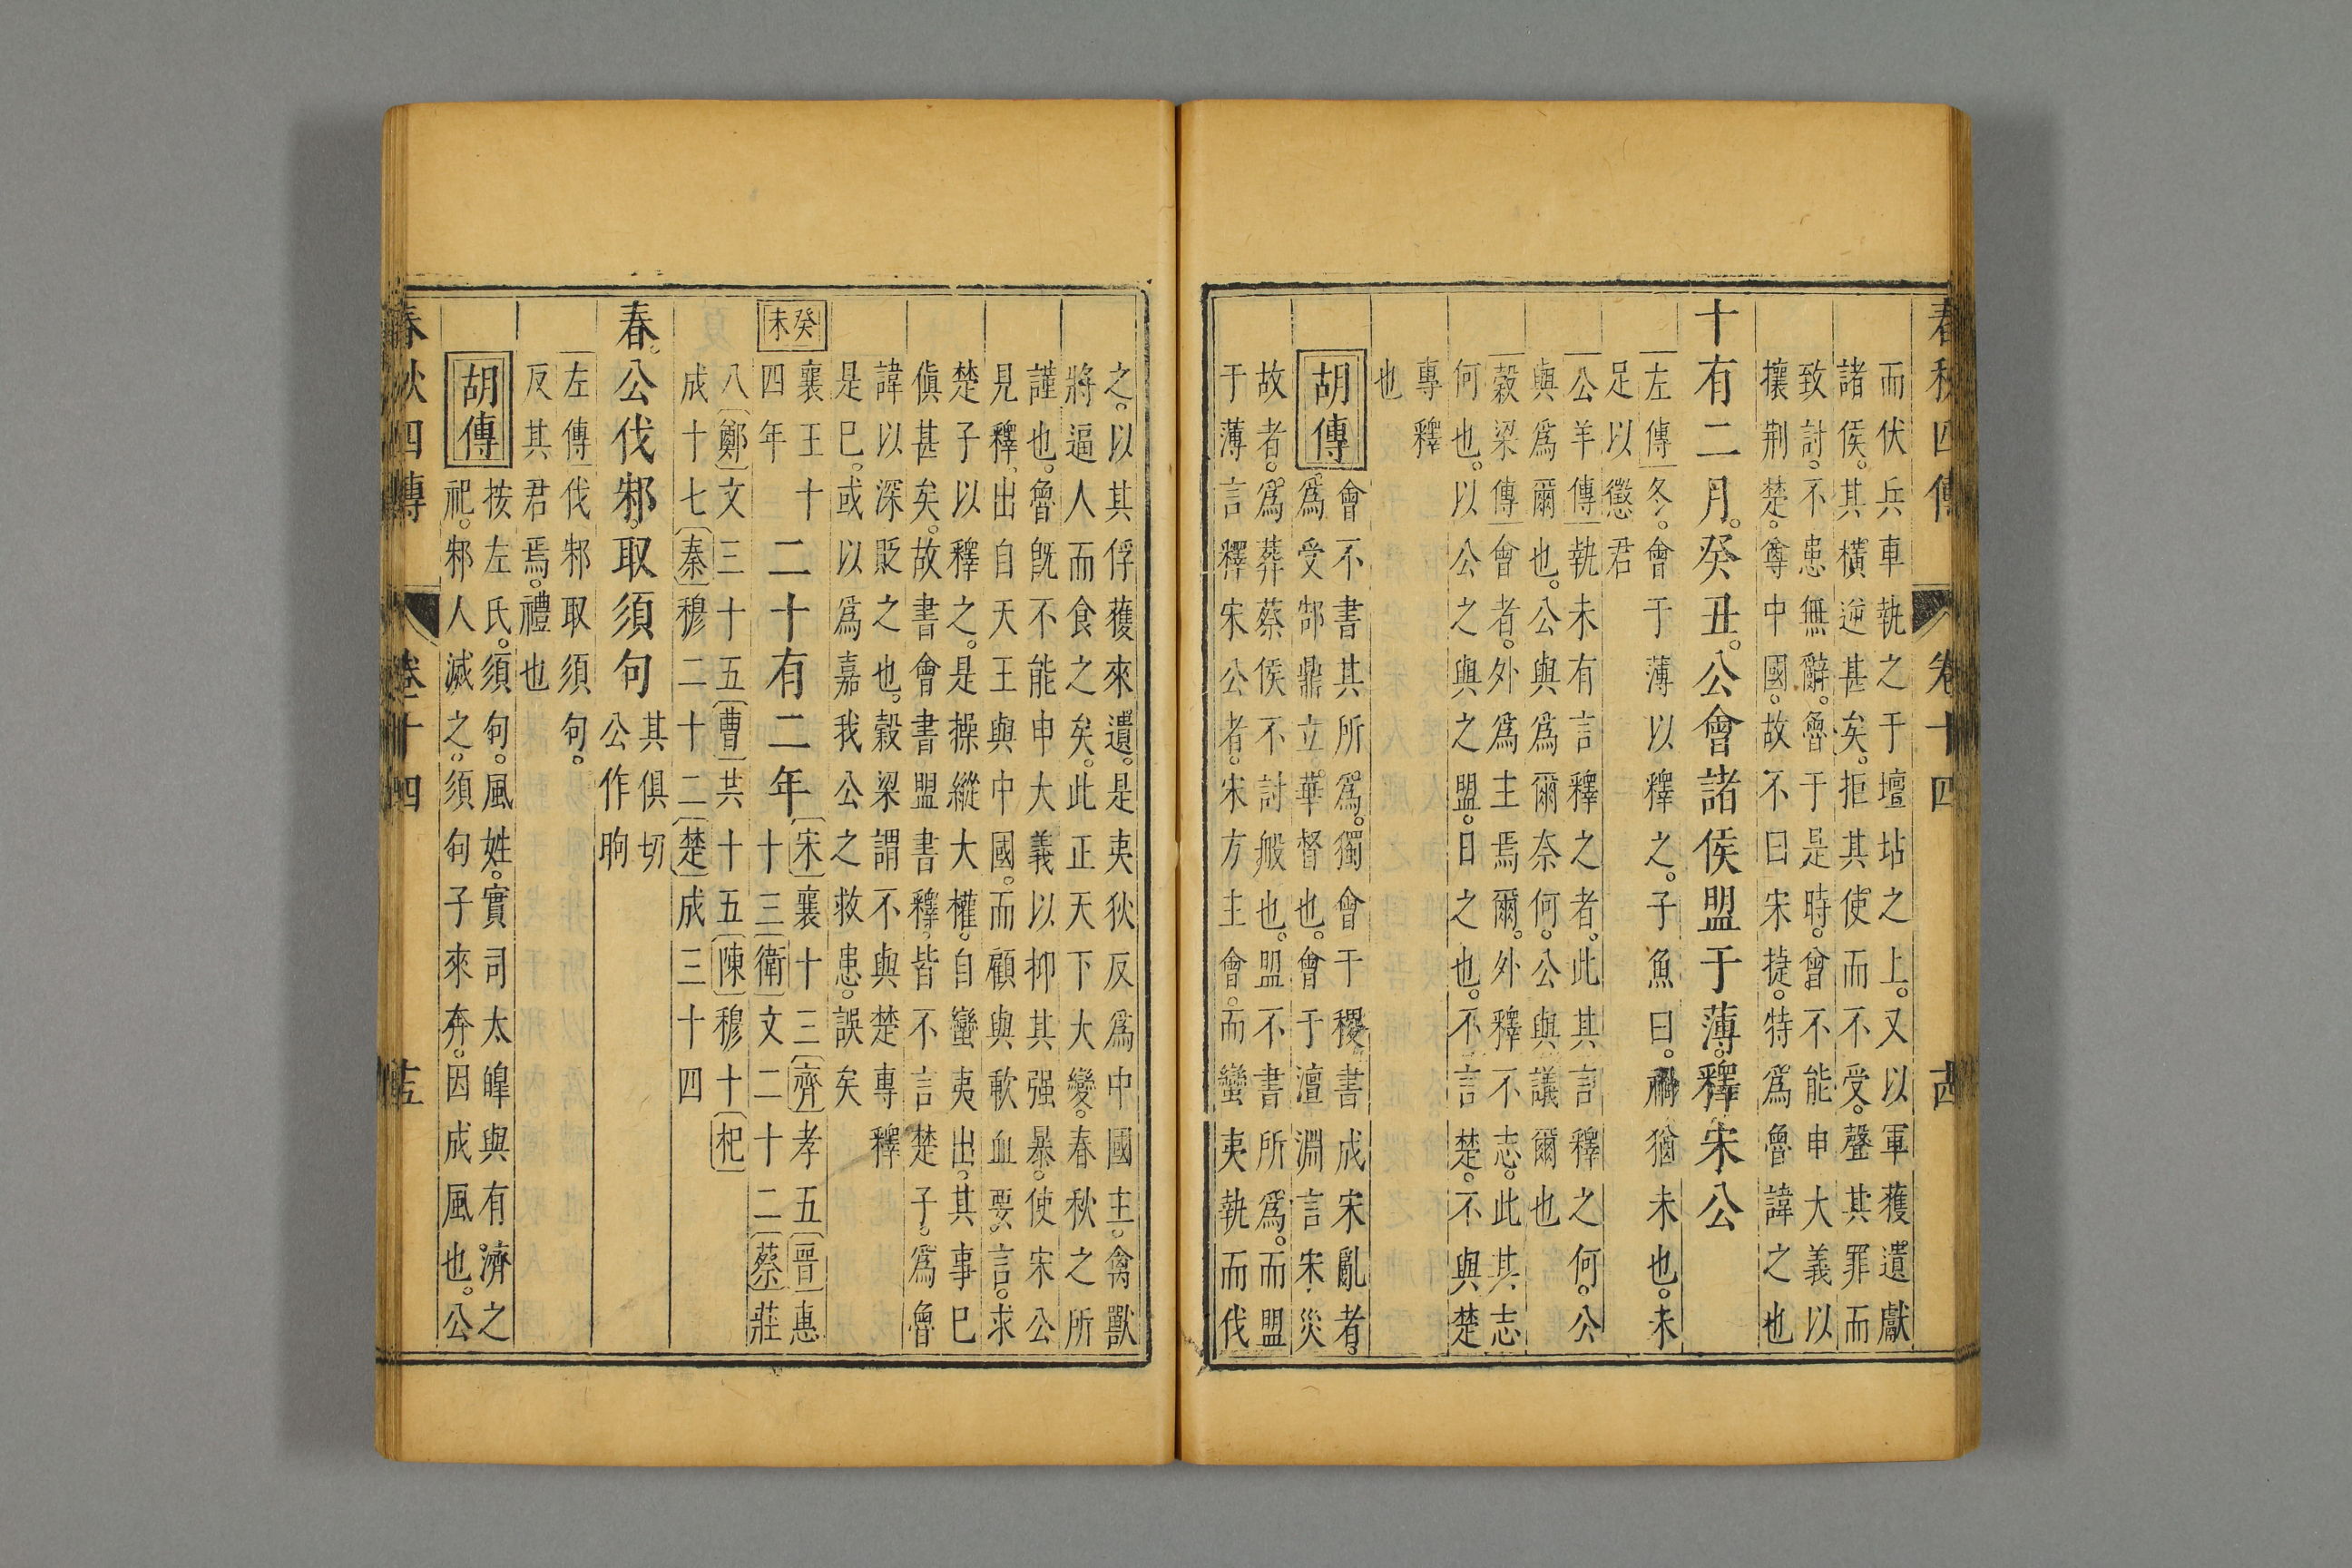 春秋四傳 卷十四
而伏兵車執之于壇坫之上。又以軍獲遺獻
諸侯。其橫逆甚矣。拒其使而不受。聲其罪而
致討。不患無辭。魯于是時。曾不能申大義以
攘荆楚。尊中國。故不曰宋捷。特爲魯諱之也
十有二月。癸丑。公會諸侯盟于薄。釋宋公
左傳冬。會于薄以釋之。子魚曰。禍猶未也。未
足以懲君
公羊傳執未有言釋之者。此其言釋之何。公
與爲爾也。公與爲爾奈何。公與議爾也
榖梁傳會者。外爲主焉爾。外釋不志。此其志
何也。以公之與之盟。目之也。不言楚。不與楚
專釋
也
胡傳會不書其所爲。獨會于稷。書成宋亂者。
爲受郜鼎立華督也。會于澶淵言宋災
故者。爲葬蔡侯不討般也。盟不書所爲。而盟
于薄言釋宋公者。宋方主會。而蠻夷執而伐
之。以其俘獲來遺。是夷狄反爲中國主。禽獸
將逼人而食之矣。此正天下大變。春秋之所
謹也。魯旣不能申大義以抑其强暴。使宋公
見釋。出自天王與中國。而顧與歃血要言。求
楚子以釋之。是操縱大權。自蠻夷出。其事已
傎甚矣。故書會書盟書釋。皆不言楚子。爲魯
諱以深貶之也。榖梁謂不與楚專釋
是已。或以爲嘉我公之救患。誤矣
癸未
襄王十四年 二十有二年 宋襄十三齊孝五晉惠
十三衛文二十二蔡莊
八鄭文三十五曹共十五陳穆十杞
成十七秦穆二十二楚成三十四
春。公伐邾。取須句 其俱切
公作朐
左傳伐邾取須句。
反其君焉。禮也
胡傳按左氏。須句。風姓。實司太皞與有濟之
祀。邾人滅之。須句子來奔。因成風也。公
春秋四傳 卷十四